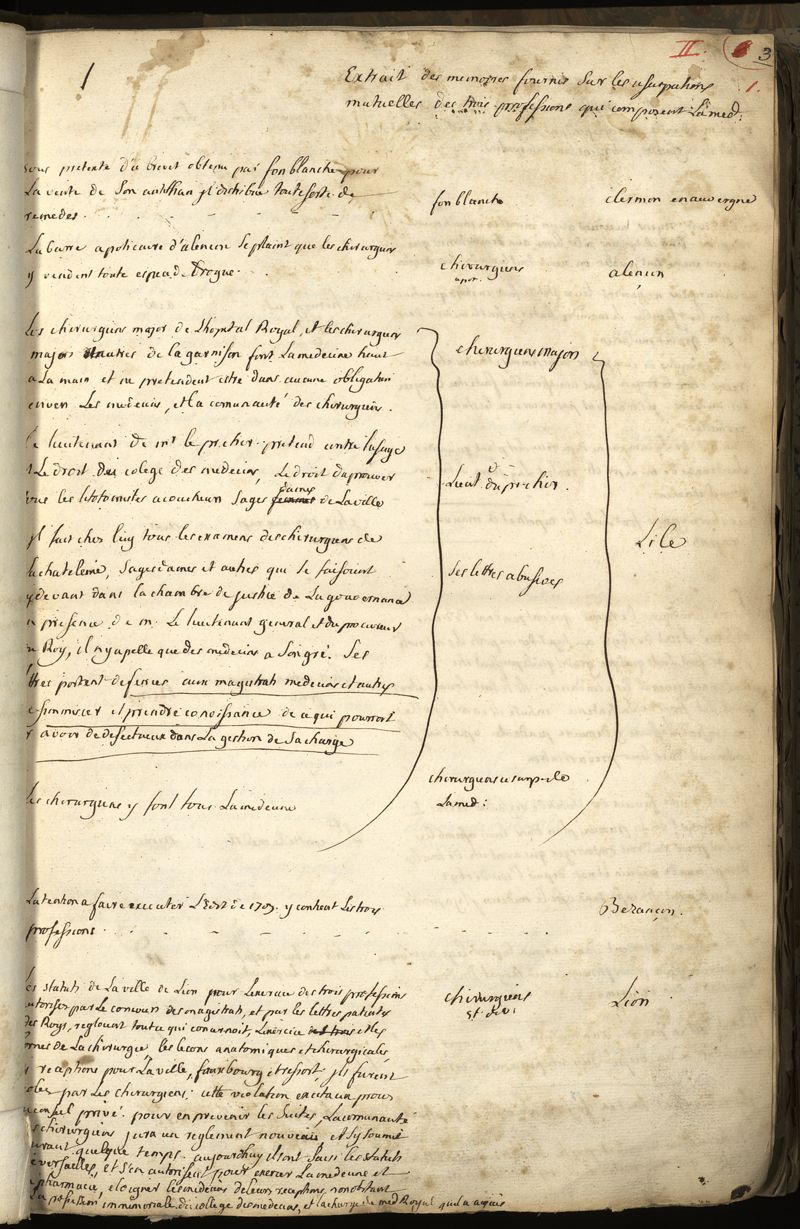 II. 3
1.
1
Extrait des memoires fournis sur les usurpations
mutuelles des trois professions qui composent la med:
sous pretexte du brevet obtenu par fonblanche pour
La vente de son jl distribue toute sorte de
remedes.
fonblanche
clermon en auvergne
La barre apoticaire d'alencon se plaint que les chirurgiens
y vendent toute espece de Drogue.
chirurgiens
apot.
alencon
Les chirurgiens major de Lhopital Royal, et les chirurgiens
majors autres de la garnison font La medecine haut
a La main et ne pretendent estre dans aucune obligation
envers Les medecins, et la comunauté des chirurgiens.
chirurgiens majors
le lieutenant de mr le pr chir. pretend contre lusage
et Le droit du colege des medecins, Le droit
tous les litotomistes acoucheurs sages dames de La ville
Lieut. du pr chir.
Lile
jl fait chez luy tous les examens des chirurgiens de
la chatelenie, sages dames et autres qui se faisoient
cy devant dans la chambre de justice de La gouvernance
en presence de m. Le lieutenant general et du procureur
du Roy, il n'y apelle que des medecins a son gré. Ses
lettres portent defenses aux magistrats medecins et autres
de simmiscer et prendre conoissance de ce qui pourroit
y avoir de defectueux dans La gestion de sa charge
ses lettres abusives
Les chirurgiens y font tous La medecine
chirurgiens usurp. de
La med:
Latention a faire executer L'Edit de 1707. y contient Les trois
professions.
Bezançon.
Les statuts de La ville de Lion pour Lexercice des trois professions
autorisez par Le concours des magistrats, et par les lettres patentes
des Roys, regloient tout ce qui concernoit, Lexercice et les
bornes de La chirurgie, les lecons anatomiques et chirurgicales,
receptions pour La ville, fauxbourg et ressort, jls furent
violez par Les chirurgiens. cette violation excita un procez
au conseil privé. pour en prevenir les suites, La comunauté
des chirurgiens jura un reglement nouveau et sy soumit
durant quelque temps. aujourdhuy ils ont saisi les statuts
de versailles, et s'en autorisent pour exercer La medecine et
la pharmacie, eloigner les medecins de leurs receptions, nonobstant
La possession immemoriale du college des medecins, et la charge de med Royal quil a acquis
chirurgiens
st. de v.
Lion